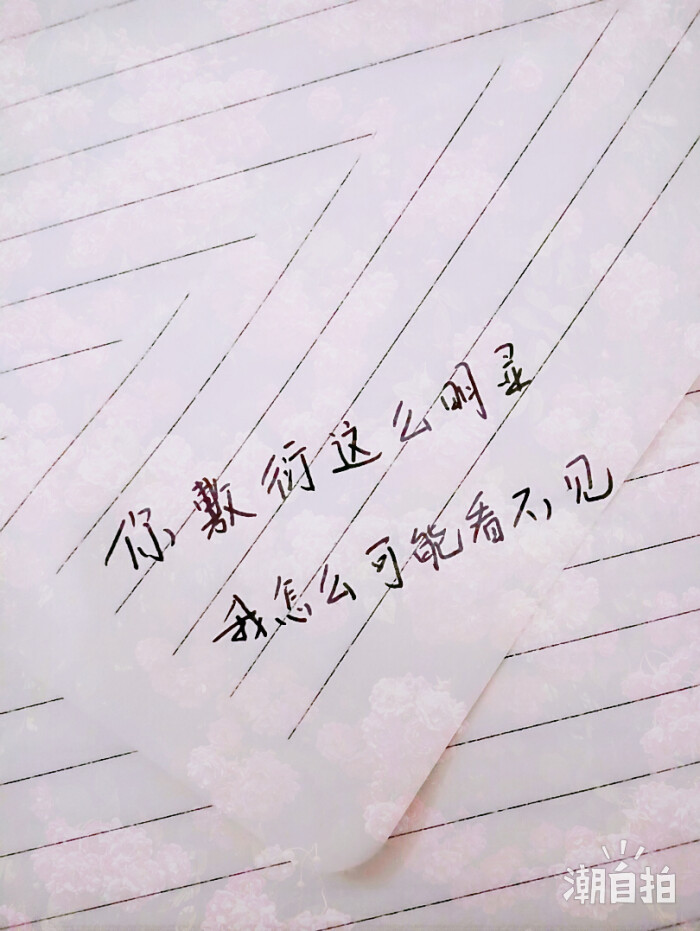 你敷衍这么明显
我怎么可能看不见
潮自拍